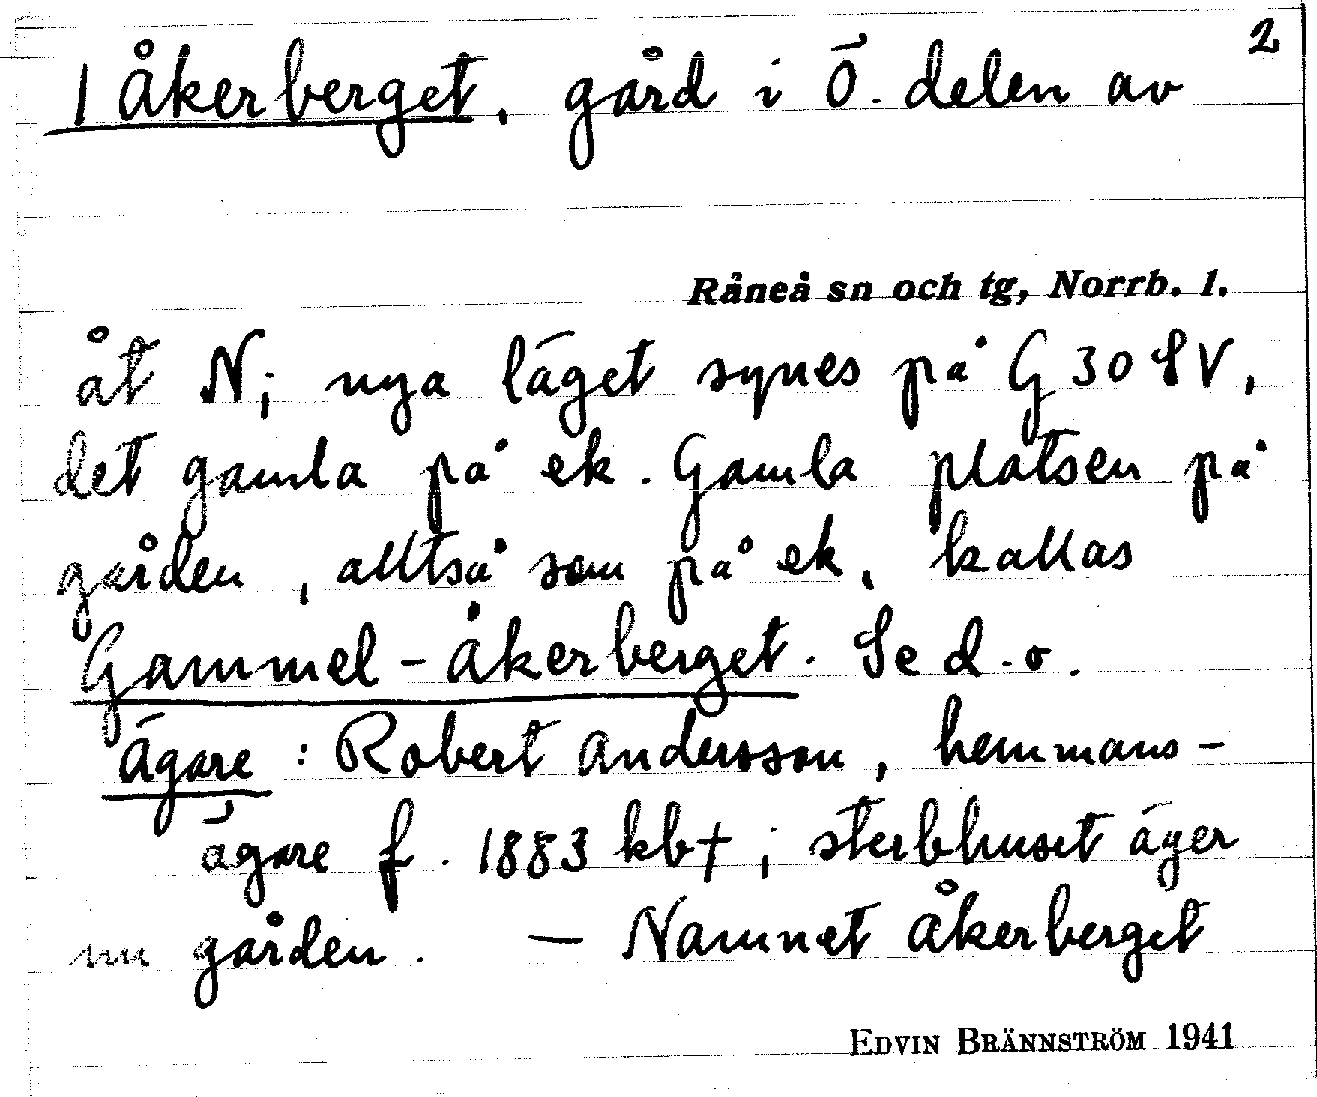 2
1 Åkerberget, gård i Ö. delen av
Råneå sn och tg, Norrb. l.
åt N; nya läget synes på G 30 SV,
det gamla på ek. Gamla platsen på
gården, alltså som på ek, kallas
Gammel-Åkerberget. Se d.o.
Ägare: Robert Andersson, hemmans-
ägare f. 1883 kb†; sterbhuset äger
nu gården. — Namnet Åkerberget
EDVIN BRÄNNSTRÖM 1941